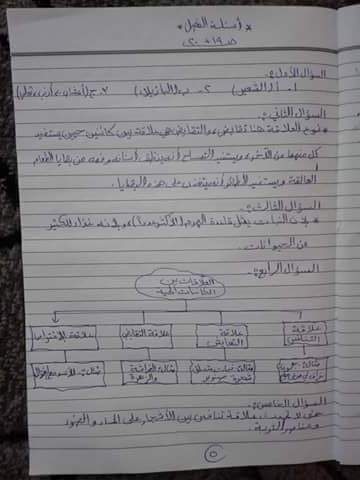 * أسئلة الفصل *
ص ١٩ + ٢٠
السؤال الأول:-
١- أ. (الشعير) ٢- ب. (البازيلاء) ٣-
السؤال الثاني:-
* نوع العلاقة هنا تقايض، والتقايض هي علاقة بين كائنين حيين يستفيد
كل منهما من الآخر، ويستفيد التمساح أسنانه من بقايا الطعام
العالقة ويستفيد الطائر على هذه البقايا.
السؤال الثالث:-
* لأن النبات يمثل قاعدة الهرم (الأكثر عدداً) ولأنه غذاء للكثير
من الحيوانات.
السؤال الرابع:-
العلاقات بين
الكائنات الحية
علاقة التنافس
علاقة التعايش
علاقة التقايض
علاقة الافتراس
مثال:
مثال: نبات
شجرة صنوبر
مثال: الفراشة
والزهرة
مثال: الأسد مع الغزال
السؤال الخامس:-
حتى لا تحدث علاقة تنافس بين الأشجار على الماء والضوء
وعناصر التربة.
٥